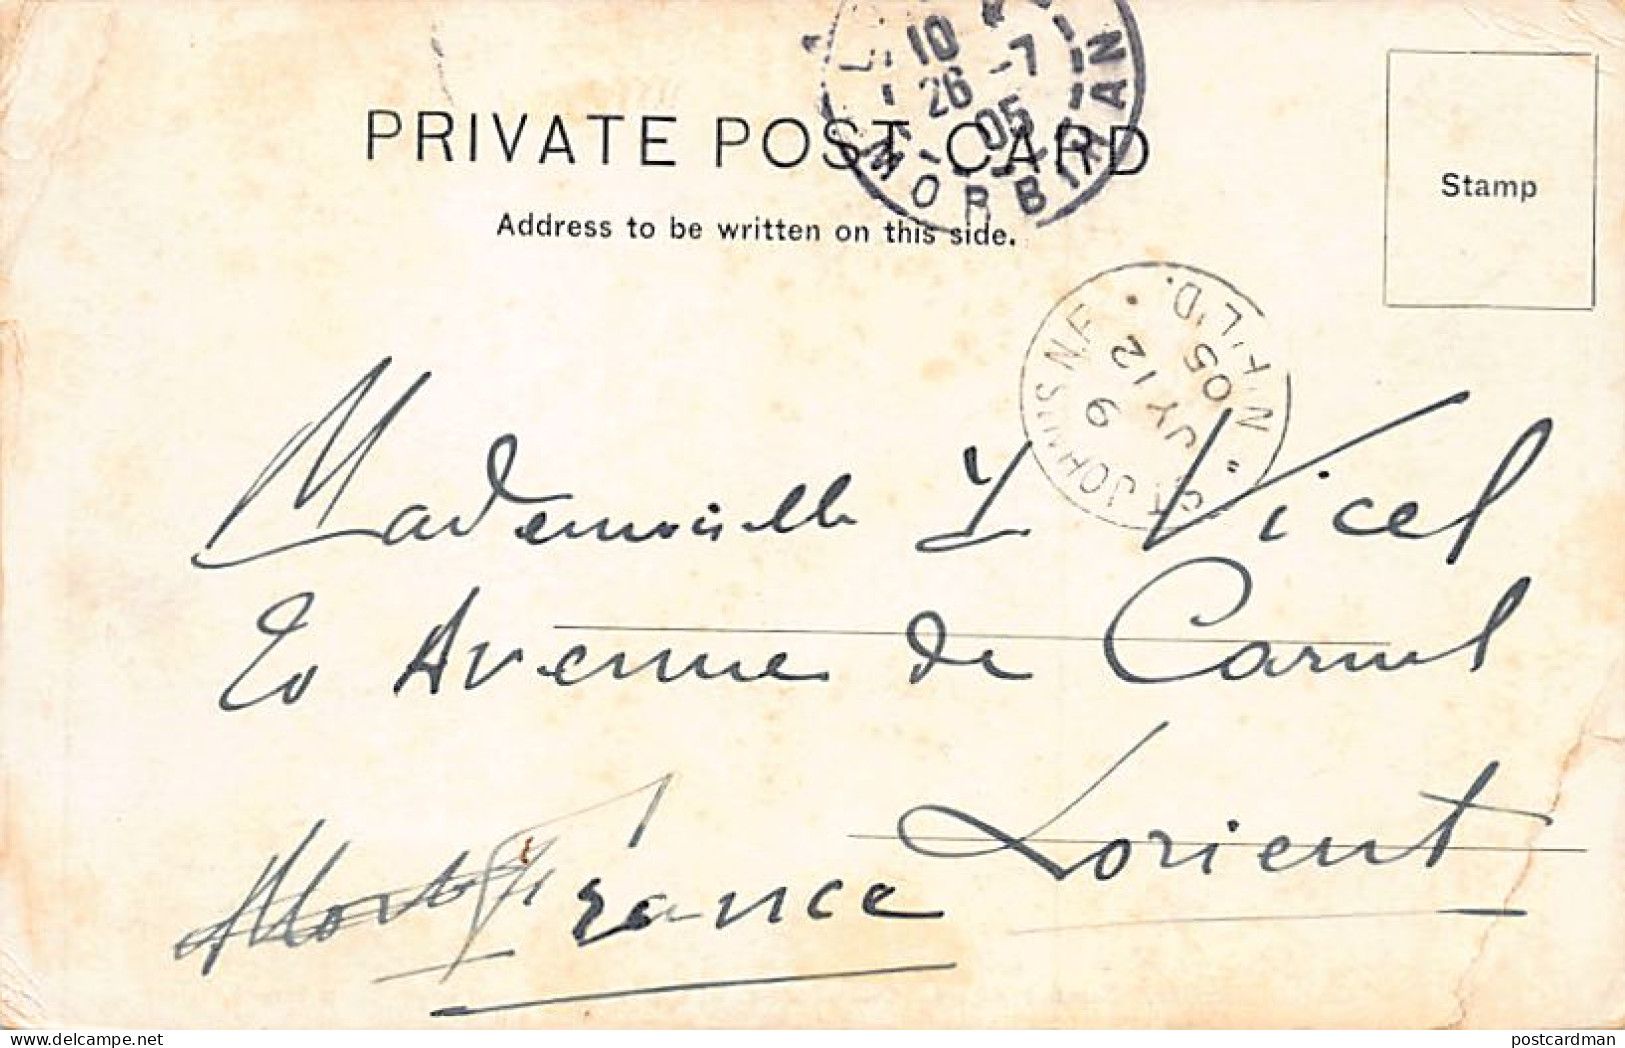 10
26 -7
05
MORBIHAN
PRIVATE POST CARD
Stamp
Address to be written on this side.
ST JOHN'S N.F. • N'F'L'D.
9
JY 12
05
Mademoiselle Y Vicel
20 Avenue de Carnel
Lorient
France
postcardman